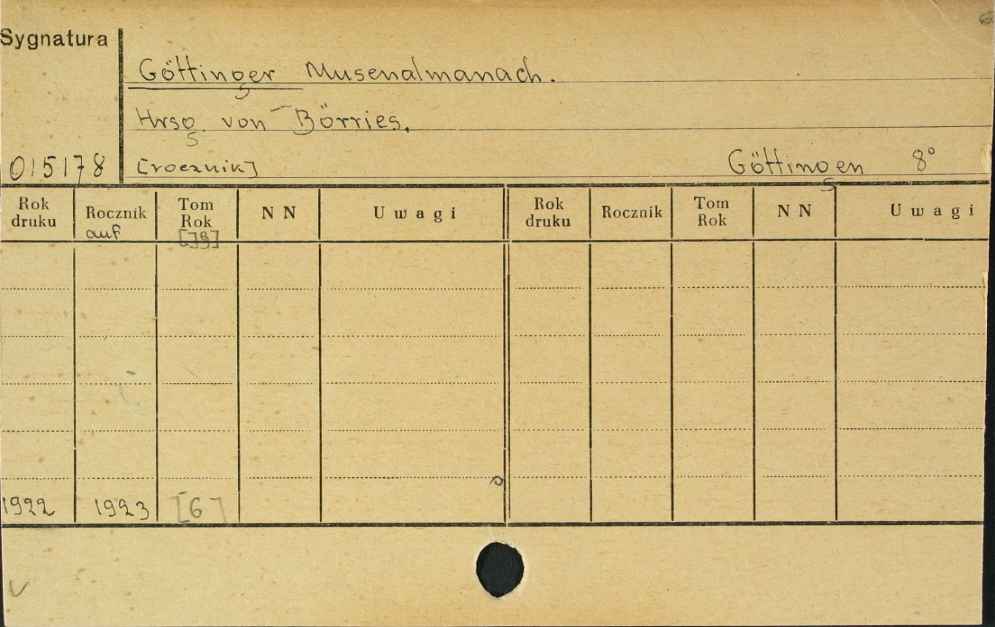 Sygnatura
Göttinger Musenalmanach.
Hrsg. von Börries.
015178 [rocznik] Göttingen 8°
Rok druku Rocznik auf Tom Rok [Jg] N N Uwagi Rok druku Rocznik Tom Rok N N Uwagi
1922 1923 [6]